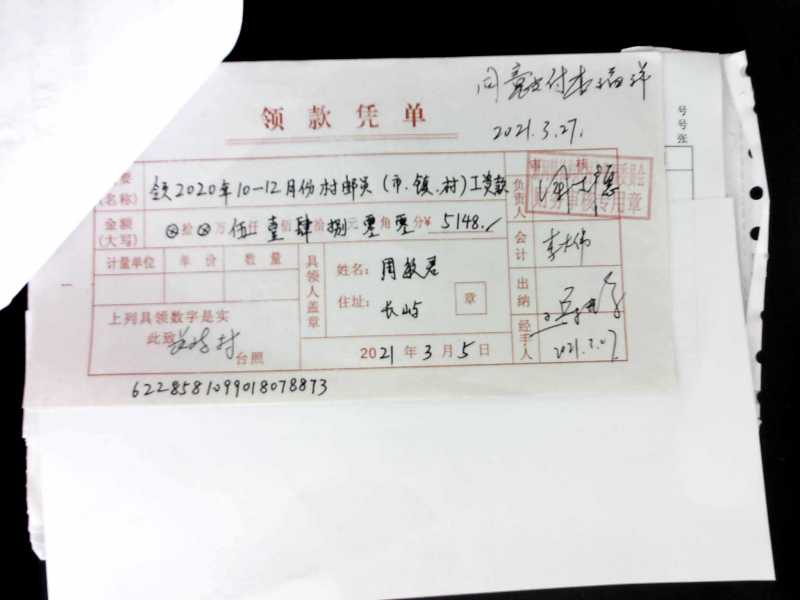 同意支付李海洋
领款凭单
2021.3.27.
号
号
张
要
(名称)
领2020年10-12月份村邮员(市、镇、村)工资款
审核
审核专用章
负责人
金额
(大写)
⊗拾⊗万伍仟壹佰肆拾捌元零角零分¥ 5148.
会计
李大伟
计量单位 单价 数量
具领人盖章
姓名: 周敏君
住址: 长屿
章
出纳
上列具领数字是实
此致 村 台照
2021年3月5日
经手人
6228581099018078873